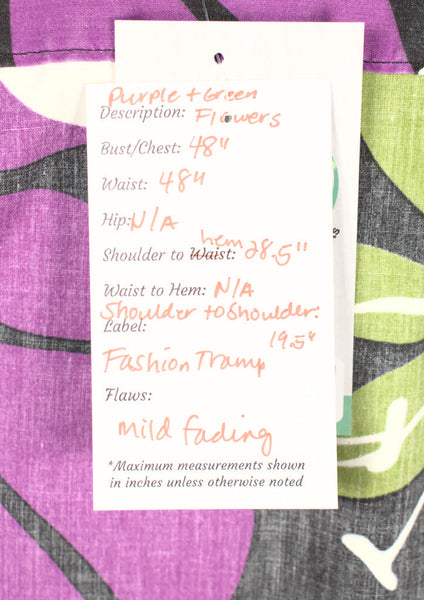 Purple + Green
Description: Flowers
Bust/Chest: 48"
Waist: 48"
Hip: N/A
hem
Shoulder to Waist: 28.5"
Waist to Hem: N/A
Shoulder to Shoulder:
Label: 19.5"
Fashion Tramp
Flaws:
Mild fading
*Maximum measurements shown
in inches unless otherwise noted